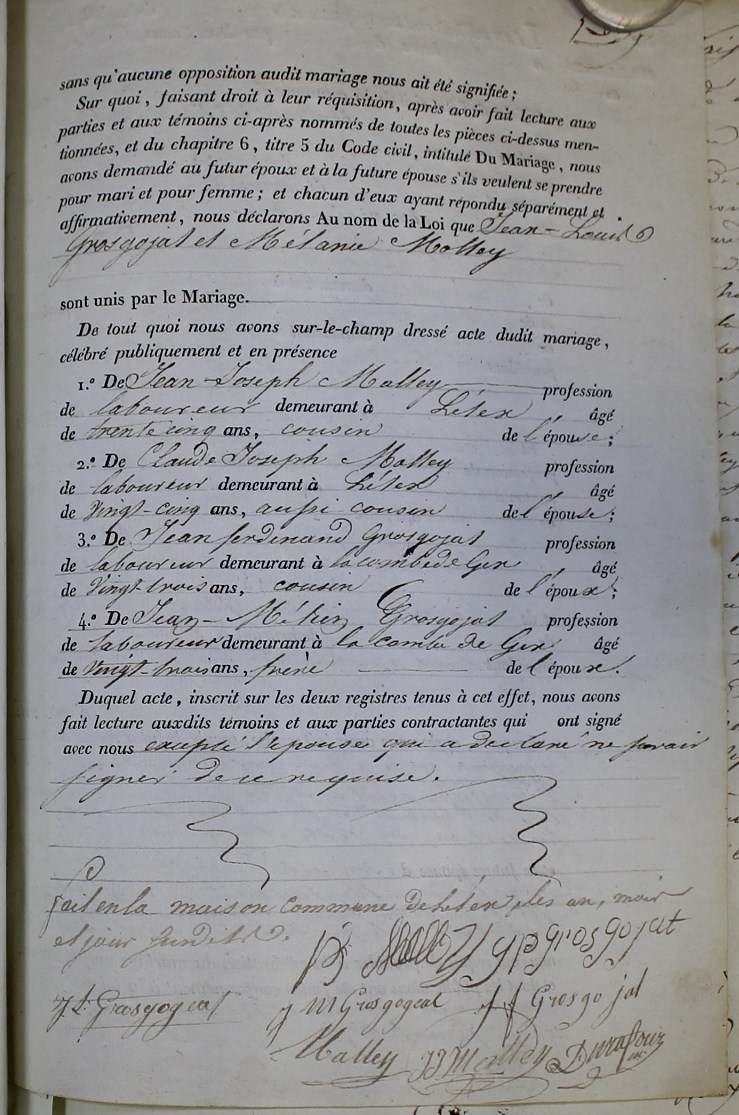 sans qu'aucune opposition audit mariage nous ait été signifiée ;
Sur quoi, faisant droit à leur réquisition, après avoir fait lecture aux
parties et aux témoins ci-après nommés de toutes les pièces ci-dessus men-
tionnées, et du chapitre 6, titre 5 du Code civil, intitulé Du Mariage, nous
avons demandé au futur époux et à la future épouse s'ils veulent se prendre
pour mari et pour femme ; et chacun d'eux ayant répondu séparément et
affirmativement, nous déclarons Au nom de la Loi que Jean-Louis
Grosgojat et Mélanie Molley
sont unis par le Mariage.
De tout quoi nous avons sur-le-champ dressé acte dudit mariage,
célébré publiquement et en présence
1.º De Jean-Joseph Malley profession
de laboureur demeurant à Lélex âgé
de trente cinq ans, cousin de l'épouse ;
2.º De Claude Joseph Molley profession
de laboureur demeurant à Lélex âgé
de Vingt-cinq ans, aussi cousin de l'épouse ;
3.º De Jean ferdinand Grosgojat profession
de laboureur demeurant à la combe de Gex âgé
de Vingt trois ans, cousin de l'époux ;
4.º De Jean- Grosgojat profession
de laboureur demeurant à la combe de Gex âgé
de Vingt-trois ans, frère de l'époux.
Duquel acte, inscrit sur les deux registres tenus à cet effet, nous avons
fait lecture auxdits témoins et aux parties contractantes qui ont signé
avec nous excepté l'épouse qui a declaré ne savoir
signer de ce requise.
fait en la maison commune de Lélex, les an, mois
et jour susdits.
Grosgojat
J L Grosgogeat J M Grosgogeat J f Grosgojat
Malley JJ Malley Durafour